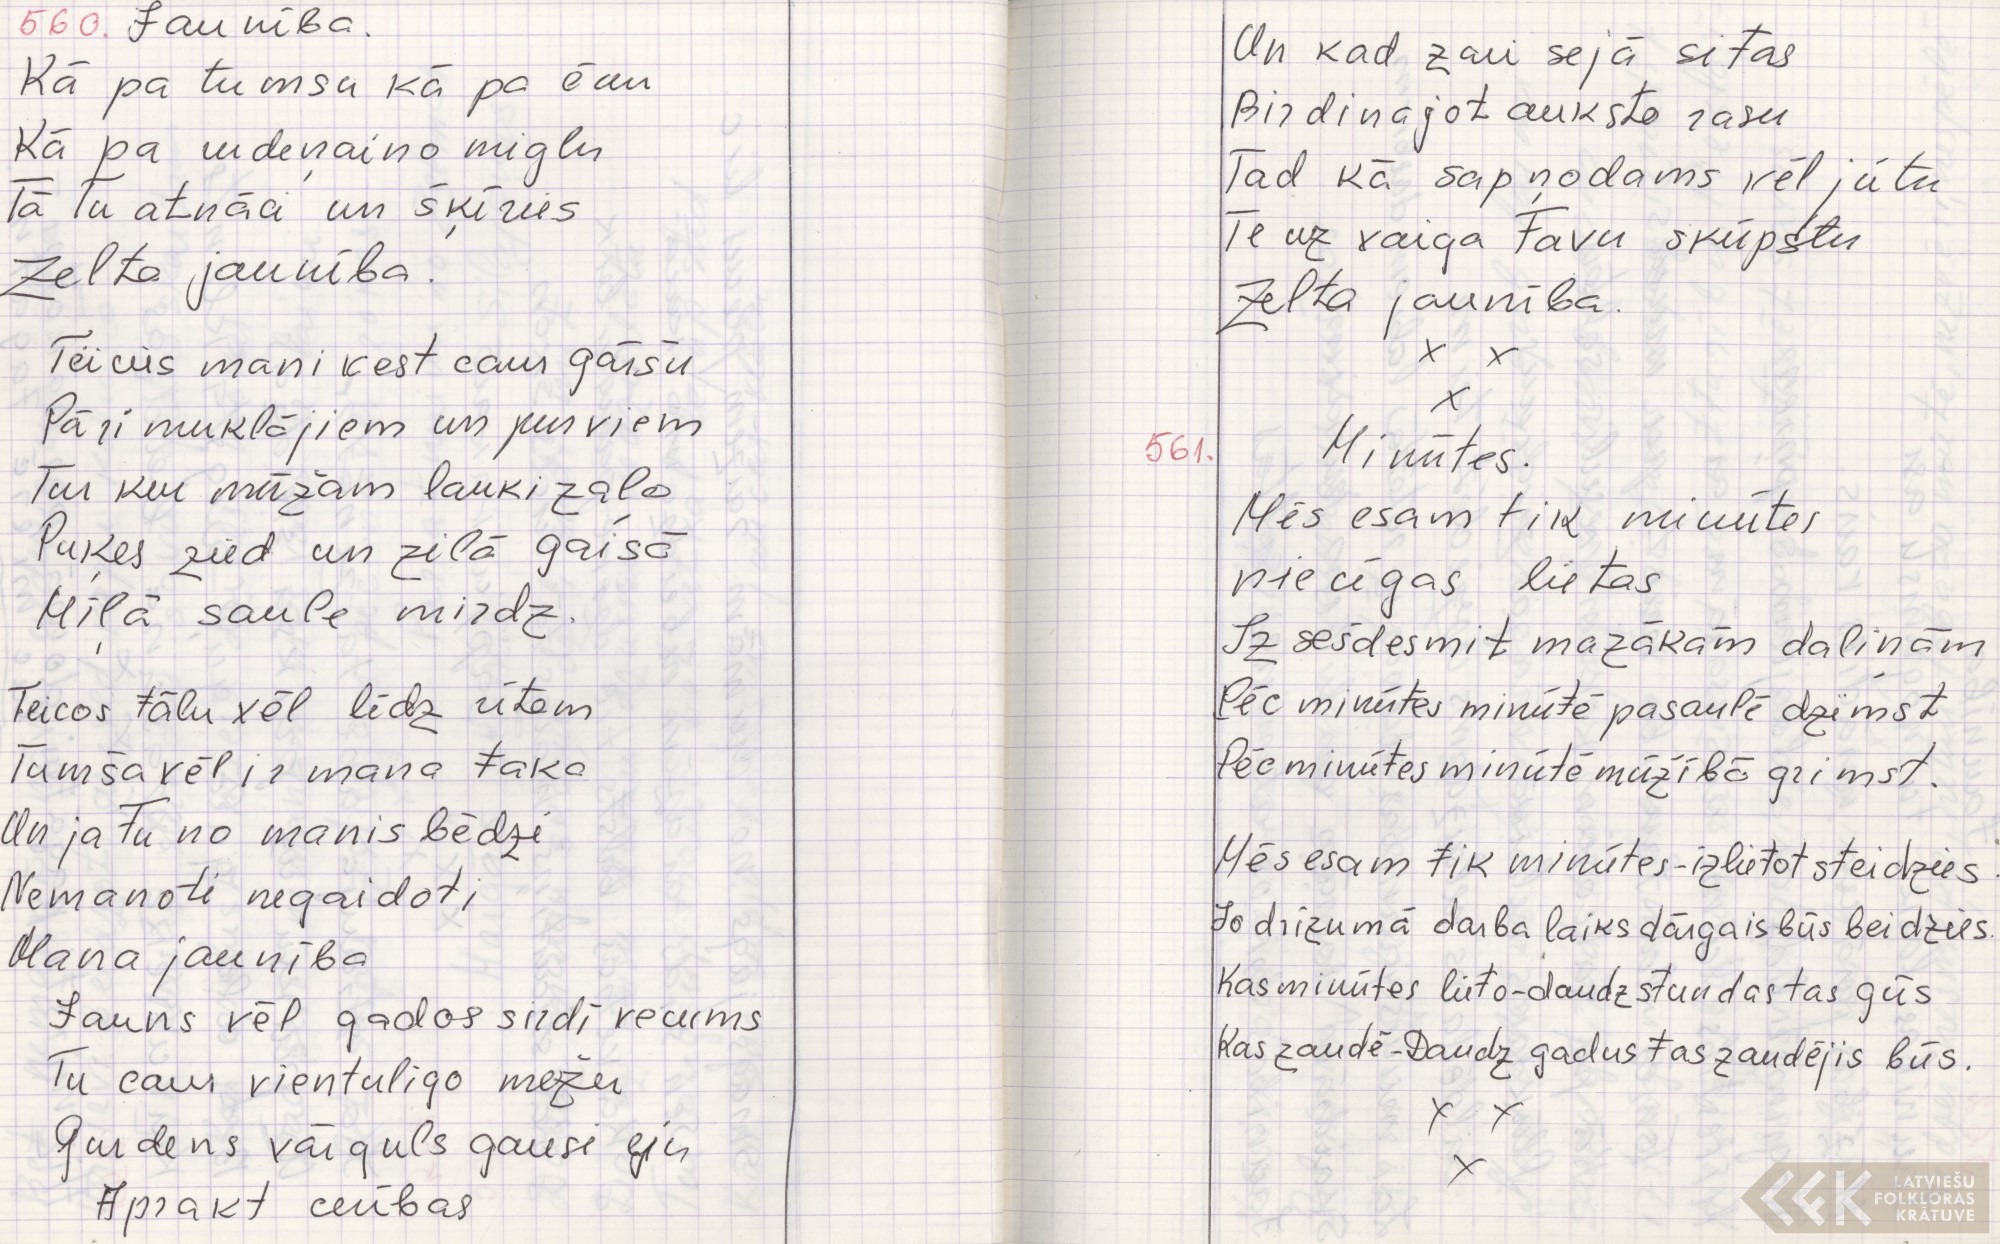 560. Jaunība.
Kā pa tumsu kā pa ēnu
Kā pa ūdeņaino miglu
Tā Tu atnāci un šķīries
Zelta jaunība.
Teicies mani vest caur gaišu
Pāri muklājiem un purviem
Tur kur mūžam lauki zaļo
Puķes zied un zilā gaisā
Mīļā saule mirdz.
Teicos tālu vēl līdz rītam
Tumša vēl ir mana taka
Un ja Tu no manis bēdzi
Nemanoti negaidoti
Mana jaunība
Jauns vēl gados sirdī vecums
Tu caur vientuligo mežu
Gurdens vārguls gausi eju
Aprakt cerības
Un kad zari sejā sitas
Birdinajot auksto rasu
Tad kā sapņodams vēl jūtu
Te uz vaiga Tavu skūpstu
Zelta jaunība.
x x
x
561. Minūtes.
Mēs esam tik minūtes
niecīgas lietas
Iz sešdesmit mazākām daļinām
Pēc minūtes minūtē pasaulē dzimst
Pēc minūtes minūtē mūžībā grimst.
Mēs esam tik minūtes-izlietot steidzies.
Jo drizumā darba laiks dārgais būs beidzies.
Kas minūtes lieto-daudz stundas tas gūs
Kas zaudē-Daudz gadus tas zaudējis būs.
x x
x
LATVIEŠU
FOLKLORAS
KRĀTUVE